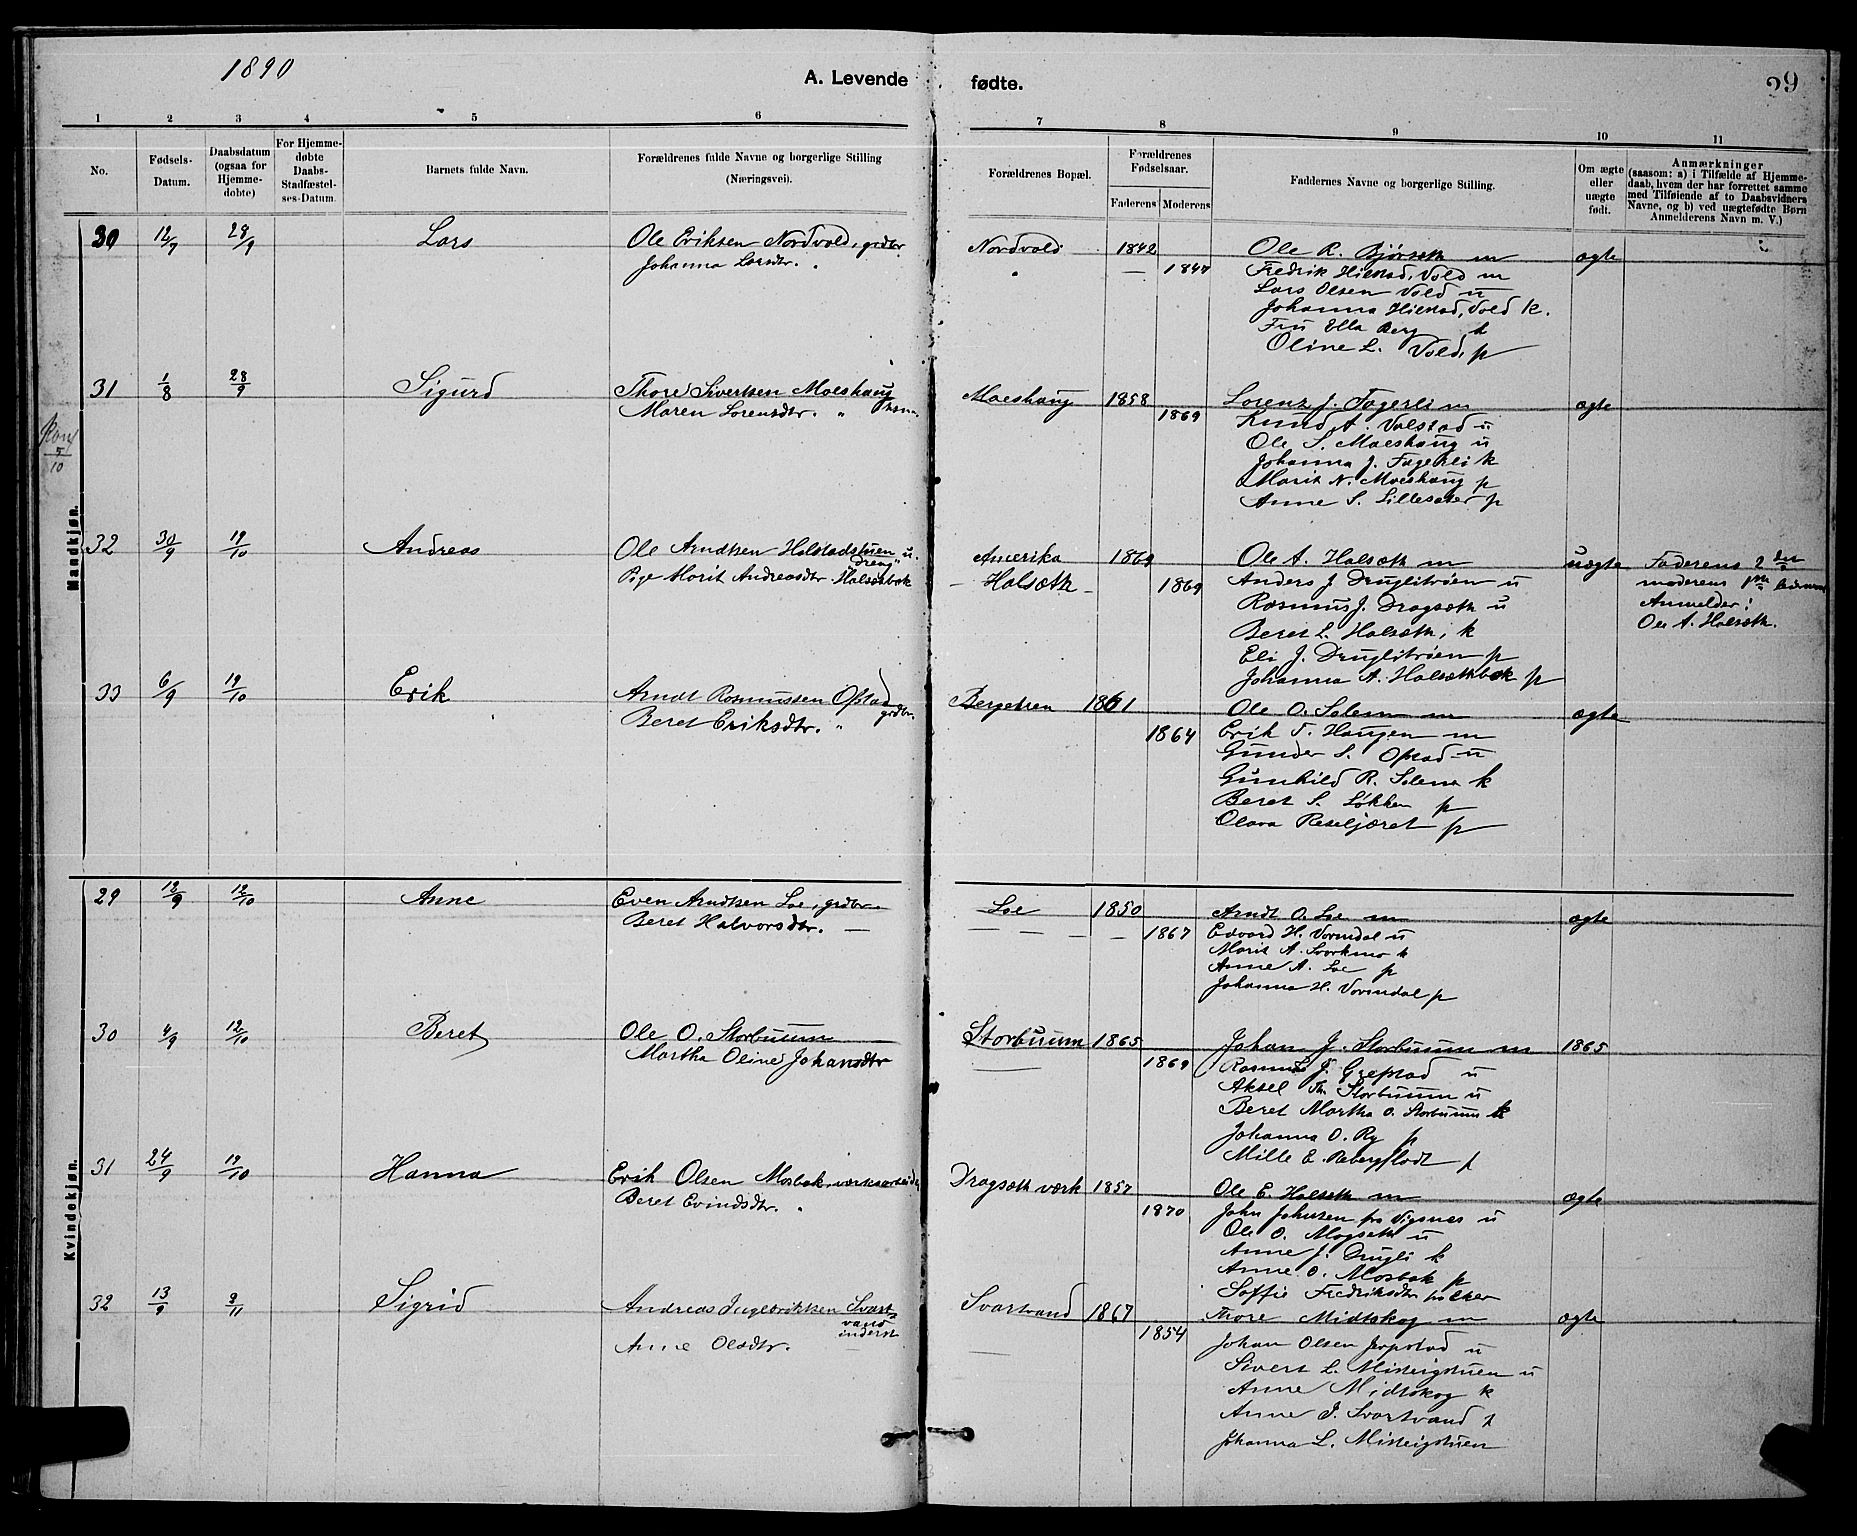 1890
A. Levende fødte.
29
1 2 3 4 5 6 7 8 9 10 11
No.
Fødsels-Datum.
Daabsdatum (ogsaa for Hjemmedøbte)
For Hjemmedøbte Daabs-Stadfæstelses-Datum.
Barnets fulde Navn.
Forældrenes fulde Navne og borgerlige Stilling (Næringsvei).
Forældrenes Bopæl.
Forældrenes Fødselsaar.
Faderens Moderens
Faddernes Navne og borgerlige Stilling.
Om ægte eller uægte født.
Anmærkninger
(saasom: a) i Tilfælde af Hjemmedaab, hvem der har forrettet samme med Tilføiende af to Daabsvidners Navne, og b) ved uægtefødte Børn Anmelderens Navn m. V.)
Mandkjøn.
30 12/9 28/9 Lars Ole Eriksen Nordvold, grdbr. Nordvold 1842 Ole R. Bjørseth m ægte
Johanna Larsdtr. " " — 1847 Fredrik Hilstad, Vold m
Lars Olsen Vold u
Johanna Hilstad, Vold k.
Fru Ella Berg k
Oline L. Vold, p
31 1/8 28/9 Sigurd Thore Sivertsen Moeshaug Moeshaug 1858 Lorenz J. Fagerli m ægte
Maren Lorensdtr. " 1869 Knud A. Valstad u
Ole S. Moeshaug u
Johanna J. Fagerli k
Marit N. Moeshaug p
Anne S. Lillesæter p
5/10
32 30/9 19/10 Andreas Ole Arndtsen Halstadstuen u. Dreng Amerika 1869 Ole A. Halsæth m uægte Faderens 2den
Pige Marit Andreasdtr Halsæthbak – Halsæth – 1869 Anders J. Druglitrøen u moderens 1ste
Rasmus J. Dragsæth u Anmelder:
Beret L. Halsæth, k Ole A. Halsæth.
Eli J. Druglitrøen p
Johanna A. Halsæthbak p
33 6/9 19/10 Erik Arndt Rasmussen Opstad grdbr. Bergetren 1861 Ole O. Solem m ægte
Beret Eriksdtr. " 1864 Erik T. Haugen m
Gunder S. Opstad u
Gunhild R. Solem k
Beret S. Løkken p
Olava Reseljæret p
Kvindekjøn.
29 12/9 12/10 Anne Even Arndtsen Loe, grdbr. Loe 1850 Arndt O. Loe m ægte
Beret Halvorsdtr. — — — — — 1867 Edvard H. Vormdal u
Marit A. Svorkmo k
Anne A. Loe p
Johanna H. Vormdal p
30 4/9 12/10 Beret Ole O. Storbuum Storbuum 1865 Johan J. Storbuum m 1865
Martha Oline Johansdtr — 1869 Rasmus J. Grefstad u
Aksel Th. Storbuum u
Beret Martha O. Storbuum k
Johanna O. Ry p
Mille E. p
31 24/9 19/10 Hanna Erik Olsen Mosbak, værksarbeider Dragseth værk 1857 Ole E. Halseth m ægte
Beret Evindsdtr. " 1870 John Johnsen fra Vigsnes u
Ole O. Mogseth u
Anne J. Drugli k
Anne O. Mosbak p
Soffie Fredriksdtr
32 13/9 9/11 Sigrid Andreas Ingebrikt­sen Svartvand inderst Svartvand 1867 Thore Midtskog m ægte
Anne Olsdtr. — — 1854 Johan Olsen Jerpstad u
Sivert L. Misteigstuen u
Anne Midtskog k
Anne J. Svartvand k
Johanna L. Misteigstuen